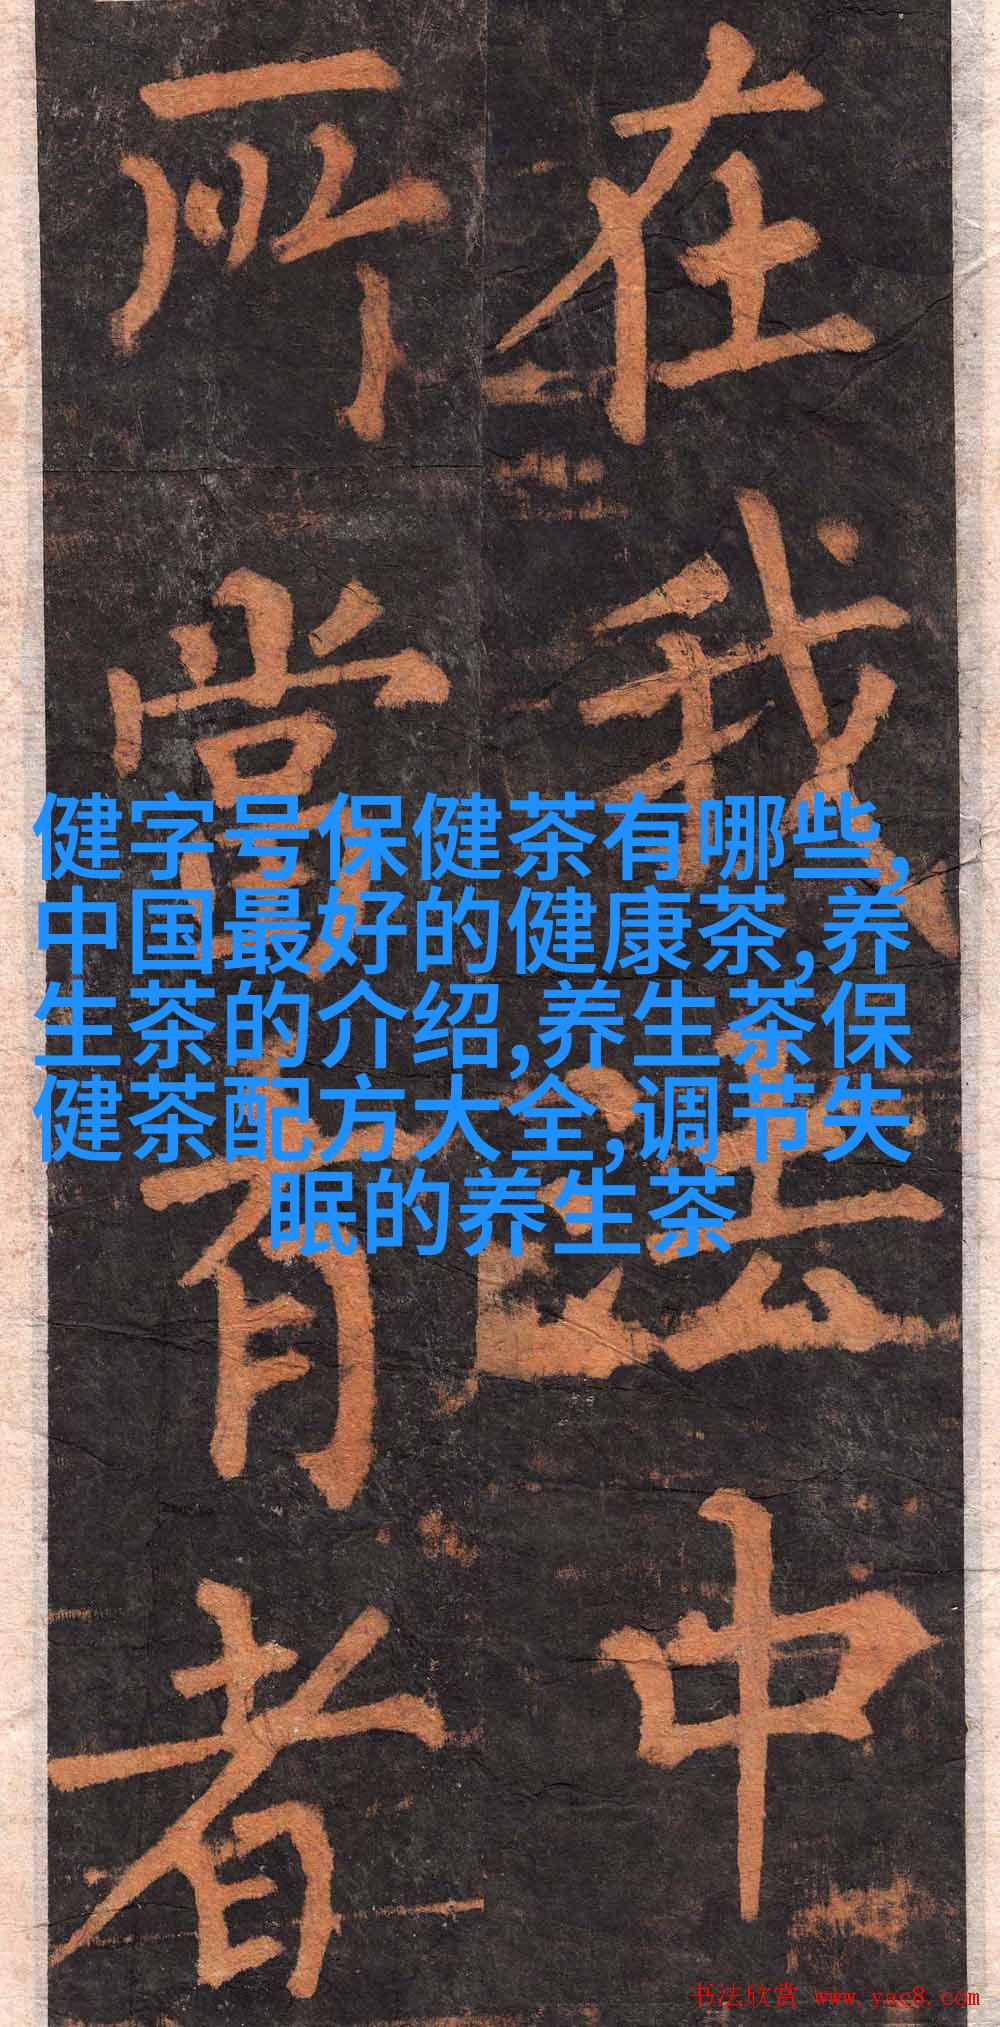 在我法中
所有者
健字号保健茶有哪些,
中国最好的健康茶,养
生茶的介绍,养生茶保
健茶配方大全,调节失
眠的养生茶
书法欣赏 www.yac8.com